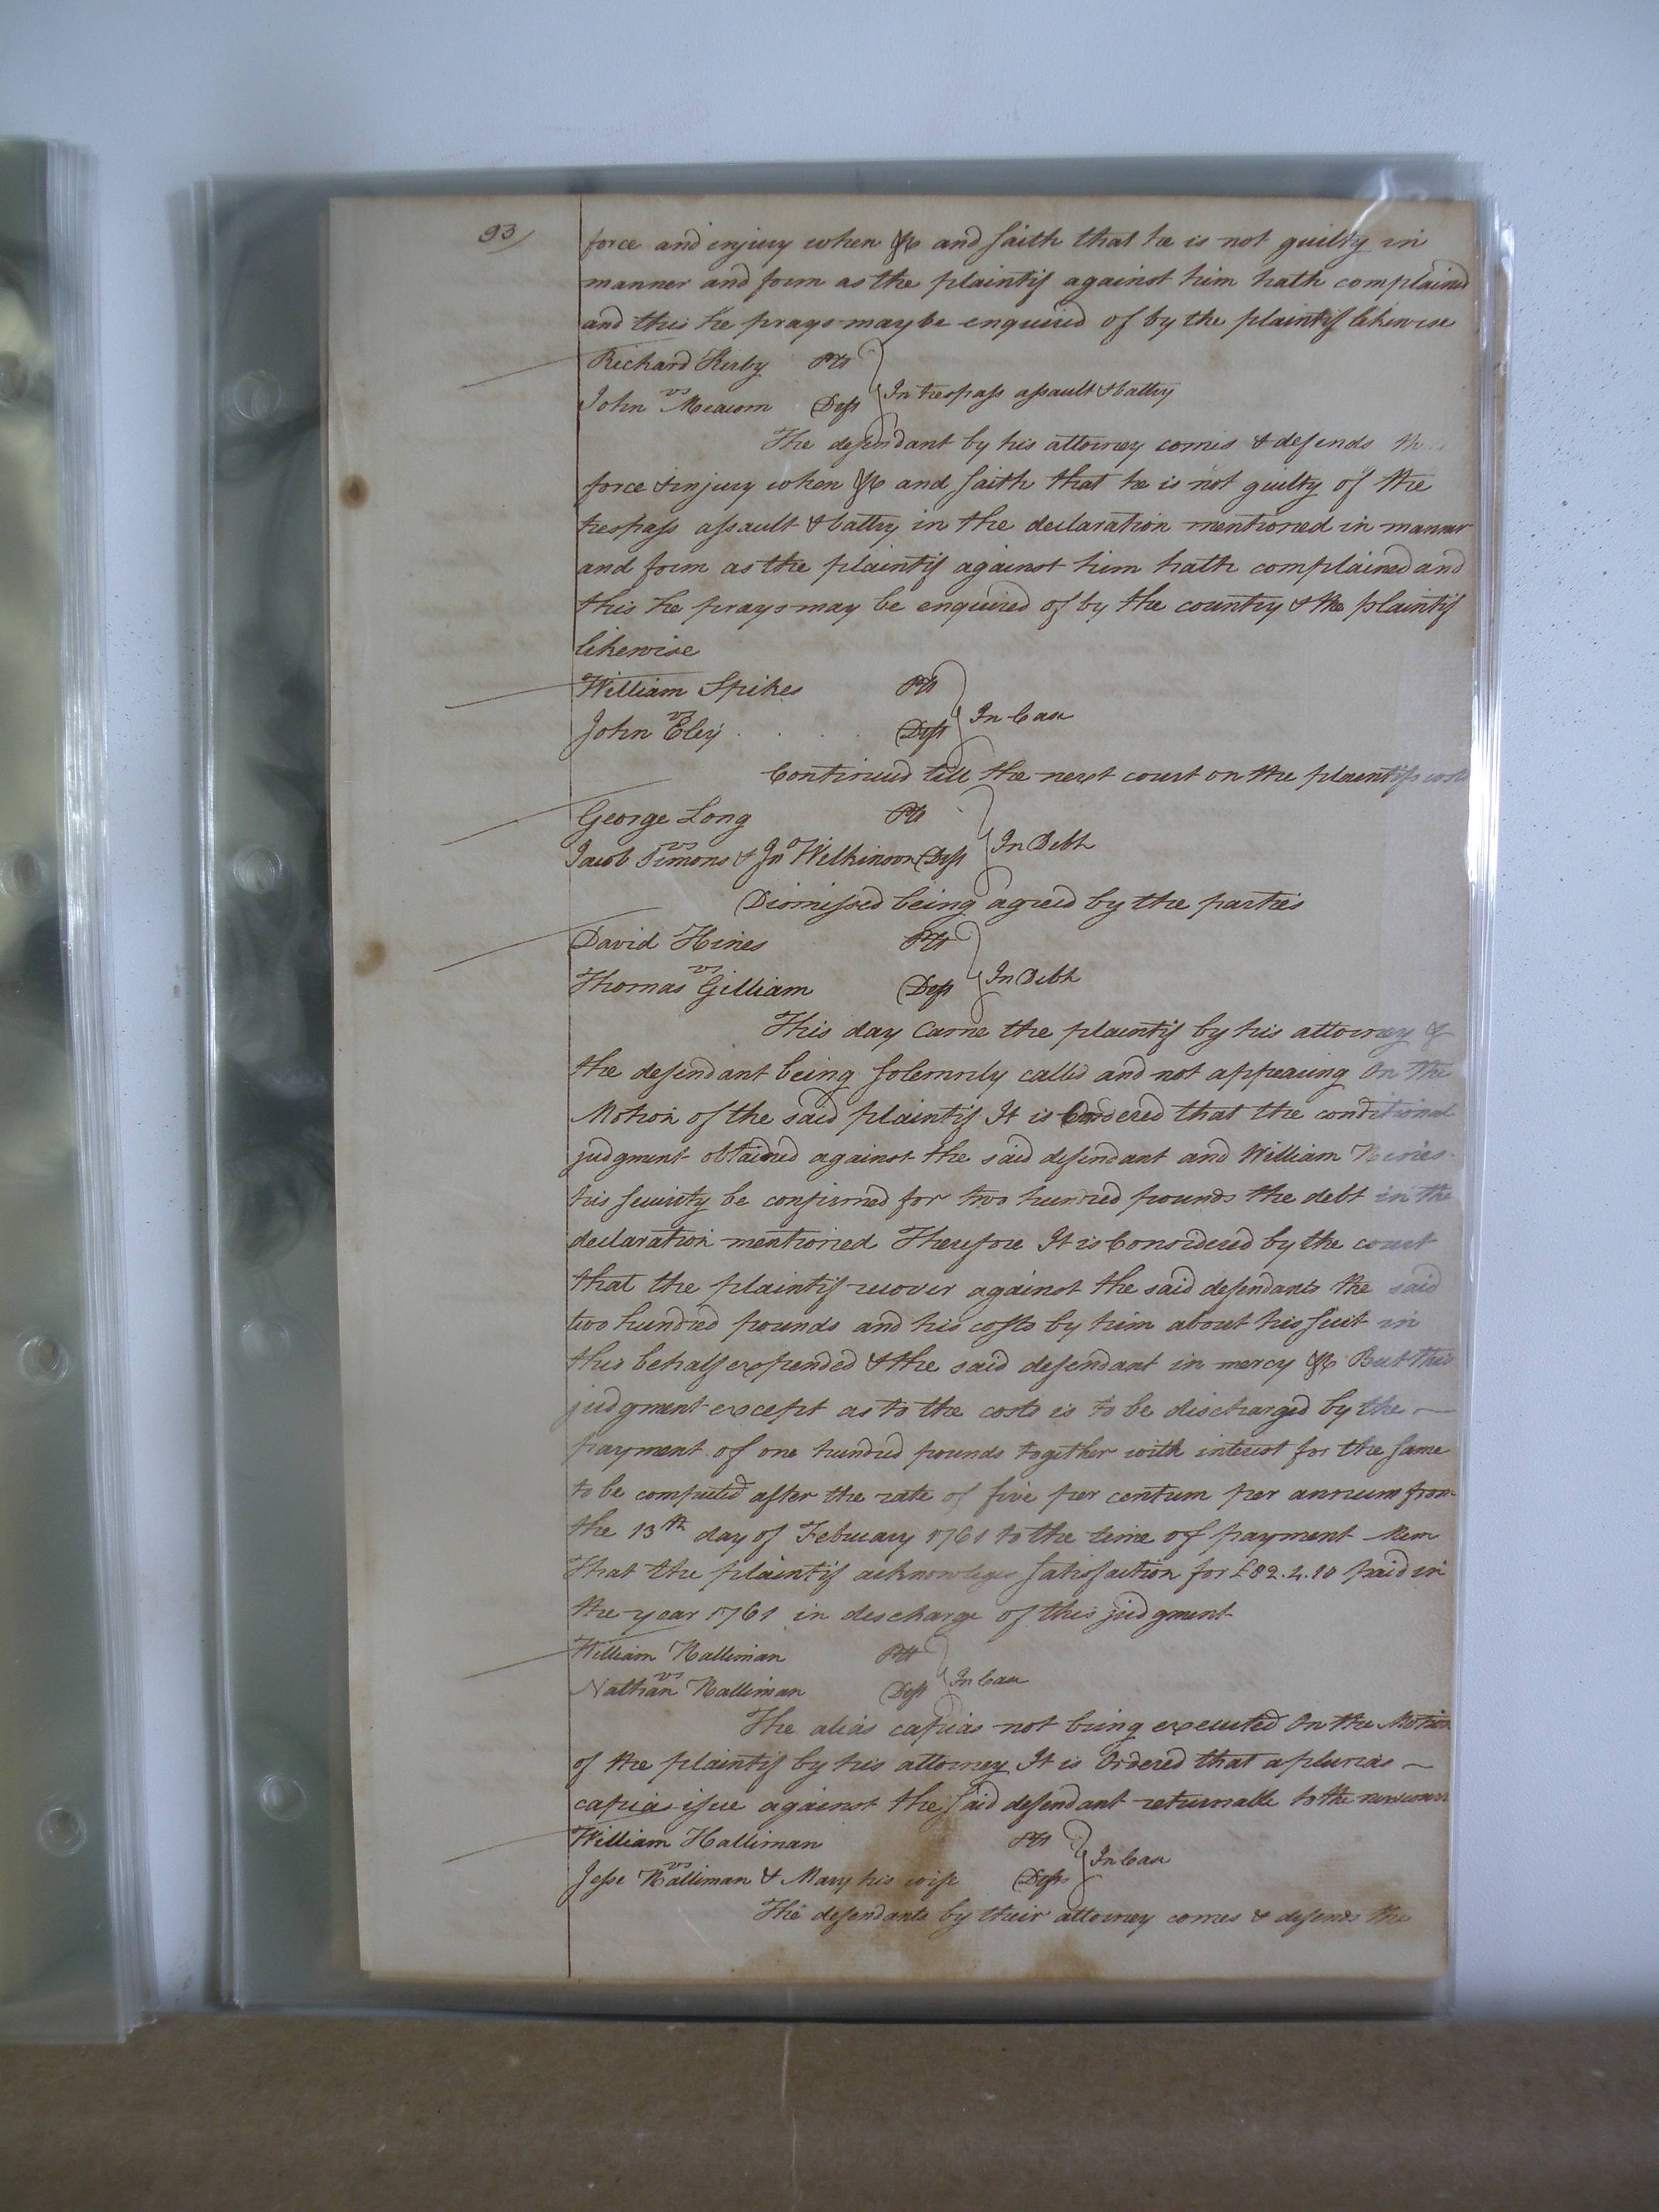 93/
force and injury when &c and saith that he is not guilty in
manner and form as the plaintif against him hath complained
and this he prays may be enquired of by the plaintif likewise
Richard Kerby Plt
vs
John Meacom Deft
In trespass assault & batty
The defendant by his attorney comes & defends the
force & injury when &c and saith that he is not guilty of the
trespass assault & battry in the declaration mentioned in manner
and form as the plaintif against him hath complained and
this he prays may be enquired of by the country & the plaintif
likewise
William Spikes Plt
vs
John Eley Deft
In Case
Continued till the next court on the plaintifs costs
George Long Plt
vs
Jacob Simons & Jno Wilkinson Deft
In Debt
Dismissed being agreed by the parties
David Hines Plt
vs
Thomas Gilliam Deft
In Debt
This day Came the plaintif by his attorney &
the defendant being solemnly called and not appearing On the
Motion of the said plaintif It is Ordered that the conditional
judgment obtained against the said defendant and William Hines
his security be confirmed for two hundred pounds the debt in the
declaration mentioned Therefore It is Considered by the court
that the plaintif recover against the said defendants the said
two hundred pounds and his costs by him about his suit in
this behalf expended & the said defendant in mercy &c But this
judgment except as to the costs is to be discharged by the
payment of one hundred pounds together with interest for the same
to be computed after the rate of five per centum per annum from
the 13th day of February 1761 to the time of payment Mem
That the plaintif acknowleges satisfaction for £82.4.10 paid in
the year 1761 in discharge of this judgment
William Halliman Plt
vs
Nathan Halliman Deft
In Case
The alias capias not being executed On the Motion
of the plaintif by his attorney It is Ordered that a plurias
capias issue against the said defendant returnable to the
William Halliman Plt
vs
Jesse Halliman & Mary his wife Defts
In Case
The defendants by their attorney comes & defends the